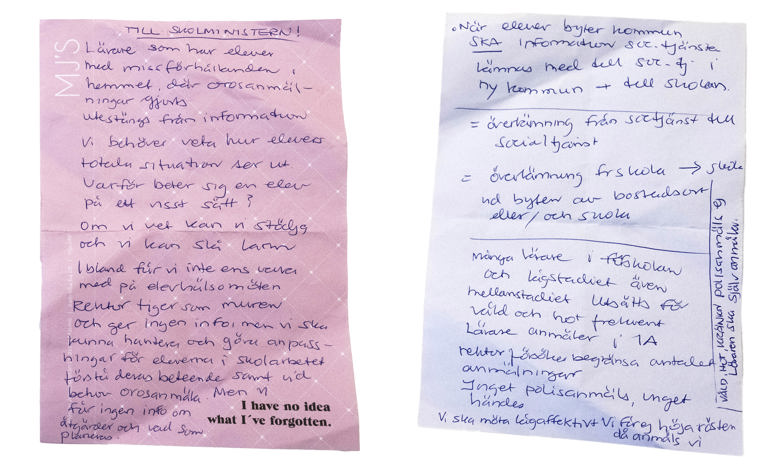 TILL SKOLMINISTERN!
MJ'S
Lärare som har elever
med missförhållanden i
hemmet, där orosanmäl-
ningar gjorts
utestängs från information
Vi behöver veta hur elevers
totala situation ser ut
Varför beter sig en elev
på ett visst sätt?
Om vi vet kan vi stötta
och vi kan slå larm
Ibland får vi inte ens vara
med på elevhälsomöten
Rektor tiger som muren
och ger ingen info, men vi ska
kunna hantera och göra anpass-
ningar för eleverna i skolarbetet
förstå deras beteende samt vid
behov orosanmäla. Men vi
får ingen info om
åtgärder och vad som
planeras.
I have no idea
what I've forgotten.
• När elever byter kommun
SKA information soc-tjänste
lämnas med till soc-tj i
ny kommun + till skolan.
= överlämning från soctjänst till
socialtjänst
= överlämning frskola → skola
vid byten av bostadsort
eller/och skola
många lärare i förskolan
och lågstadiet även
mellanstadiet utsätts för
våld och hot frekvent
Lärare anmäler i IA
rektor försöker begränsa antalet
anmälningar
Inget polisanmäls, inget
händer
Vi ska möta lågaffektivt Vi får ej höja rösten
då anmäls vi
VÅLD, HOT, KRÄNKN polisanmäls ej
Läraren ska själv anmäla.